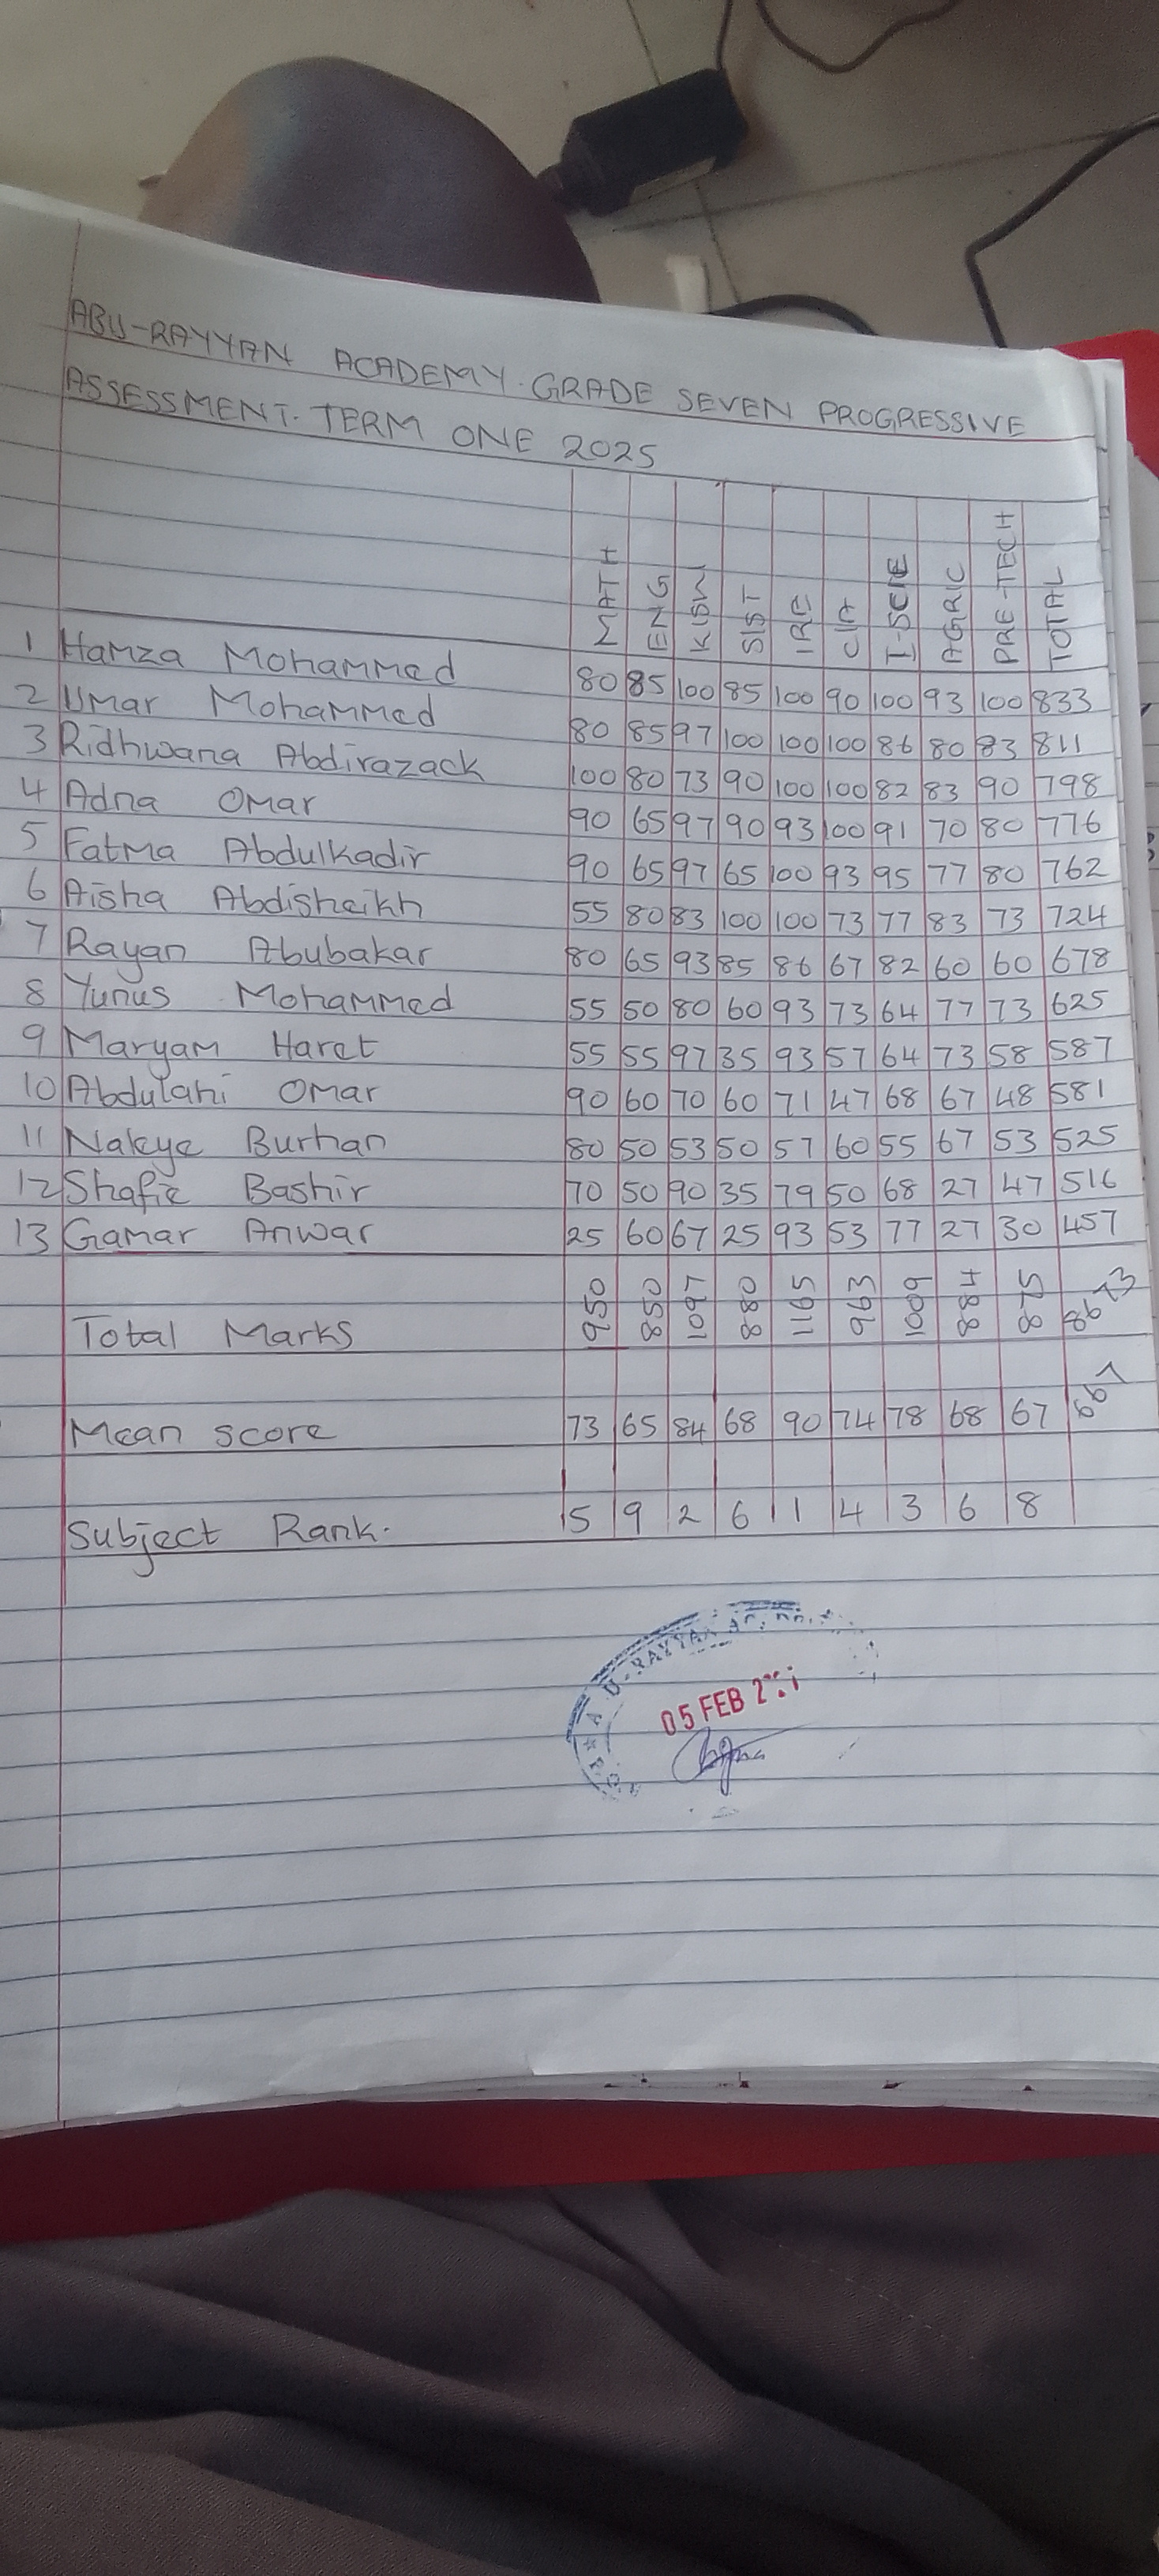 ABU-RAYYAN ACADEMY. GRADE SEVEN PROGRESSIVE
ASSESSMENT. TERM ONE 2025
MATH ENG KISW S/ST IRE C/A I-SCIE AGRIC PRE-TECH TOTAL
1 Hamza Mohammed 80 85 100 85 100 90 100 93 100 833
2 Umar Mohammed 80 85 97 100 100 100 86 80 83 811
3 Ridhwana Abdirazack 100 80 73 90 100 100 82 83 90 798
4 Adna Omar 90 65 97 90 93 100 91 70 80 776
5 Fatma Abdulkadir 90 65 97 65 100 93 95 77 80 762
6 Aisha Abdisheikh 55 80 83 100 100 73 77 83 73 724
7 Rayan Abubakar 80 65 93 85 86 67 82 60 60 678
8 Yunus Mohammed 55 50 80 60 93 73 64 77 73 625
9 Maryam Haret 55 55 97 35 93 57 64 73 58 587
10 Abdulahi Omar 90 60 70 60 71 47 68 67 48 581
11 Nakye Burhan 80 50 53 50 57 60 55 67 53 525
12 Shafie Bashir 70 50 90 35 79 50 68 27 47 516
13 Gamar Anwar 25 60 67 25 93 53 77 27 30 457
Total Marks 950 850 1097 880 1165 963 1009 884 875 8673
Mean score 73 65 84 68 90 74 78 68 67 667
Subject Rank. 5 9 2 6 1 4 3 6 8
05 FEB